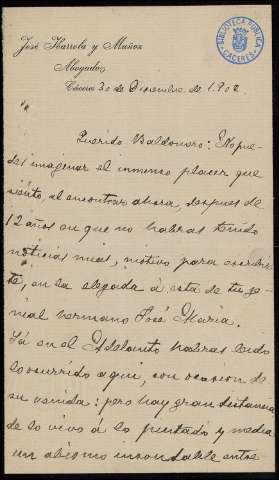 José Ibarrola y Muñoz
Abogado
BIBLIOTECA PÚBLICA
CÁCERES
Cáceres 30 de Diciembre de 1.902
Querido Baldomero: No pue-
des imaginar el inmenso placer que
siento, al encontrar ahora, despues de
12 años en que no habras tenido
noticias mias, motivo para escribir-
te, en la llegada á esta de tu ge-
nial hermano José Maria.
Yá en el Adelanto habras leido
lo ocurrido aqui, con ocasion de
su venida: pero hay gran distancia
de lo vivo á lo pintado y media
un abismo insondable entre